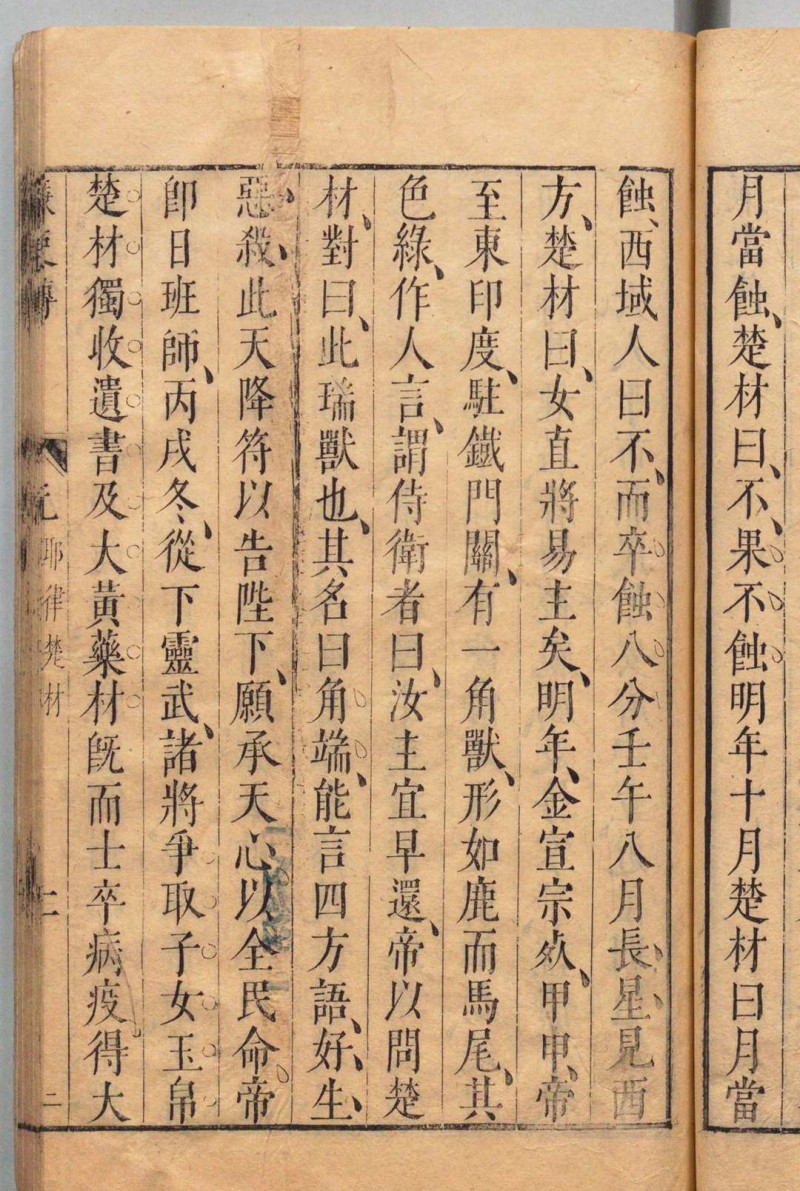 月當蝕、楚材曰、不、果不蝕明年十月楚材曰月當
蝕、西域人曰不、而卒蝕八分壬午八月長星見西
方、楚材曰、女直將易主矣、明年、金宣宗㱙、甲申、帝
至東印度、駐鐵門關、有一角獸、形如鹿而馬尾、其
色綠、作人言、謂侍衛者曰、汝主宜早還、帝以問楚
材、對曰、此瑞獸也、其名曰角端、能言四方語、好生
惡殺、此天降符以告陛下、願承天心以全民命、帝
卽日班師、丙戌冬、從下靈武、諸將爭取子女玉帛
楚材獨收遺書及大黃藥材旣而士卒病疫得大
元 耶律楚材 二